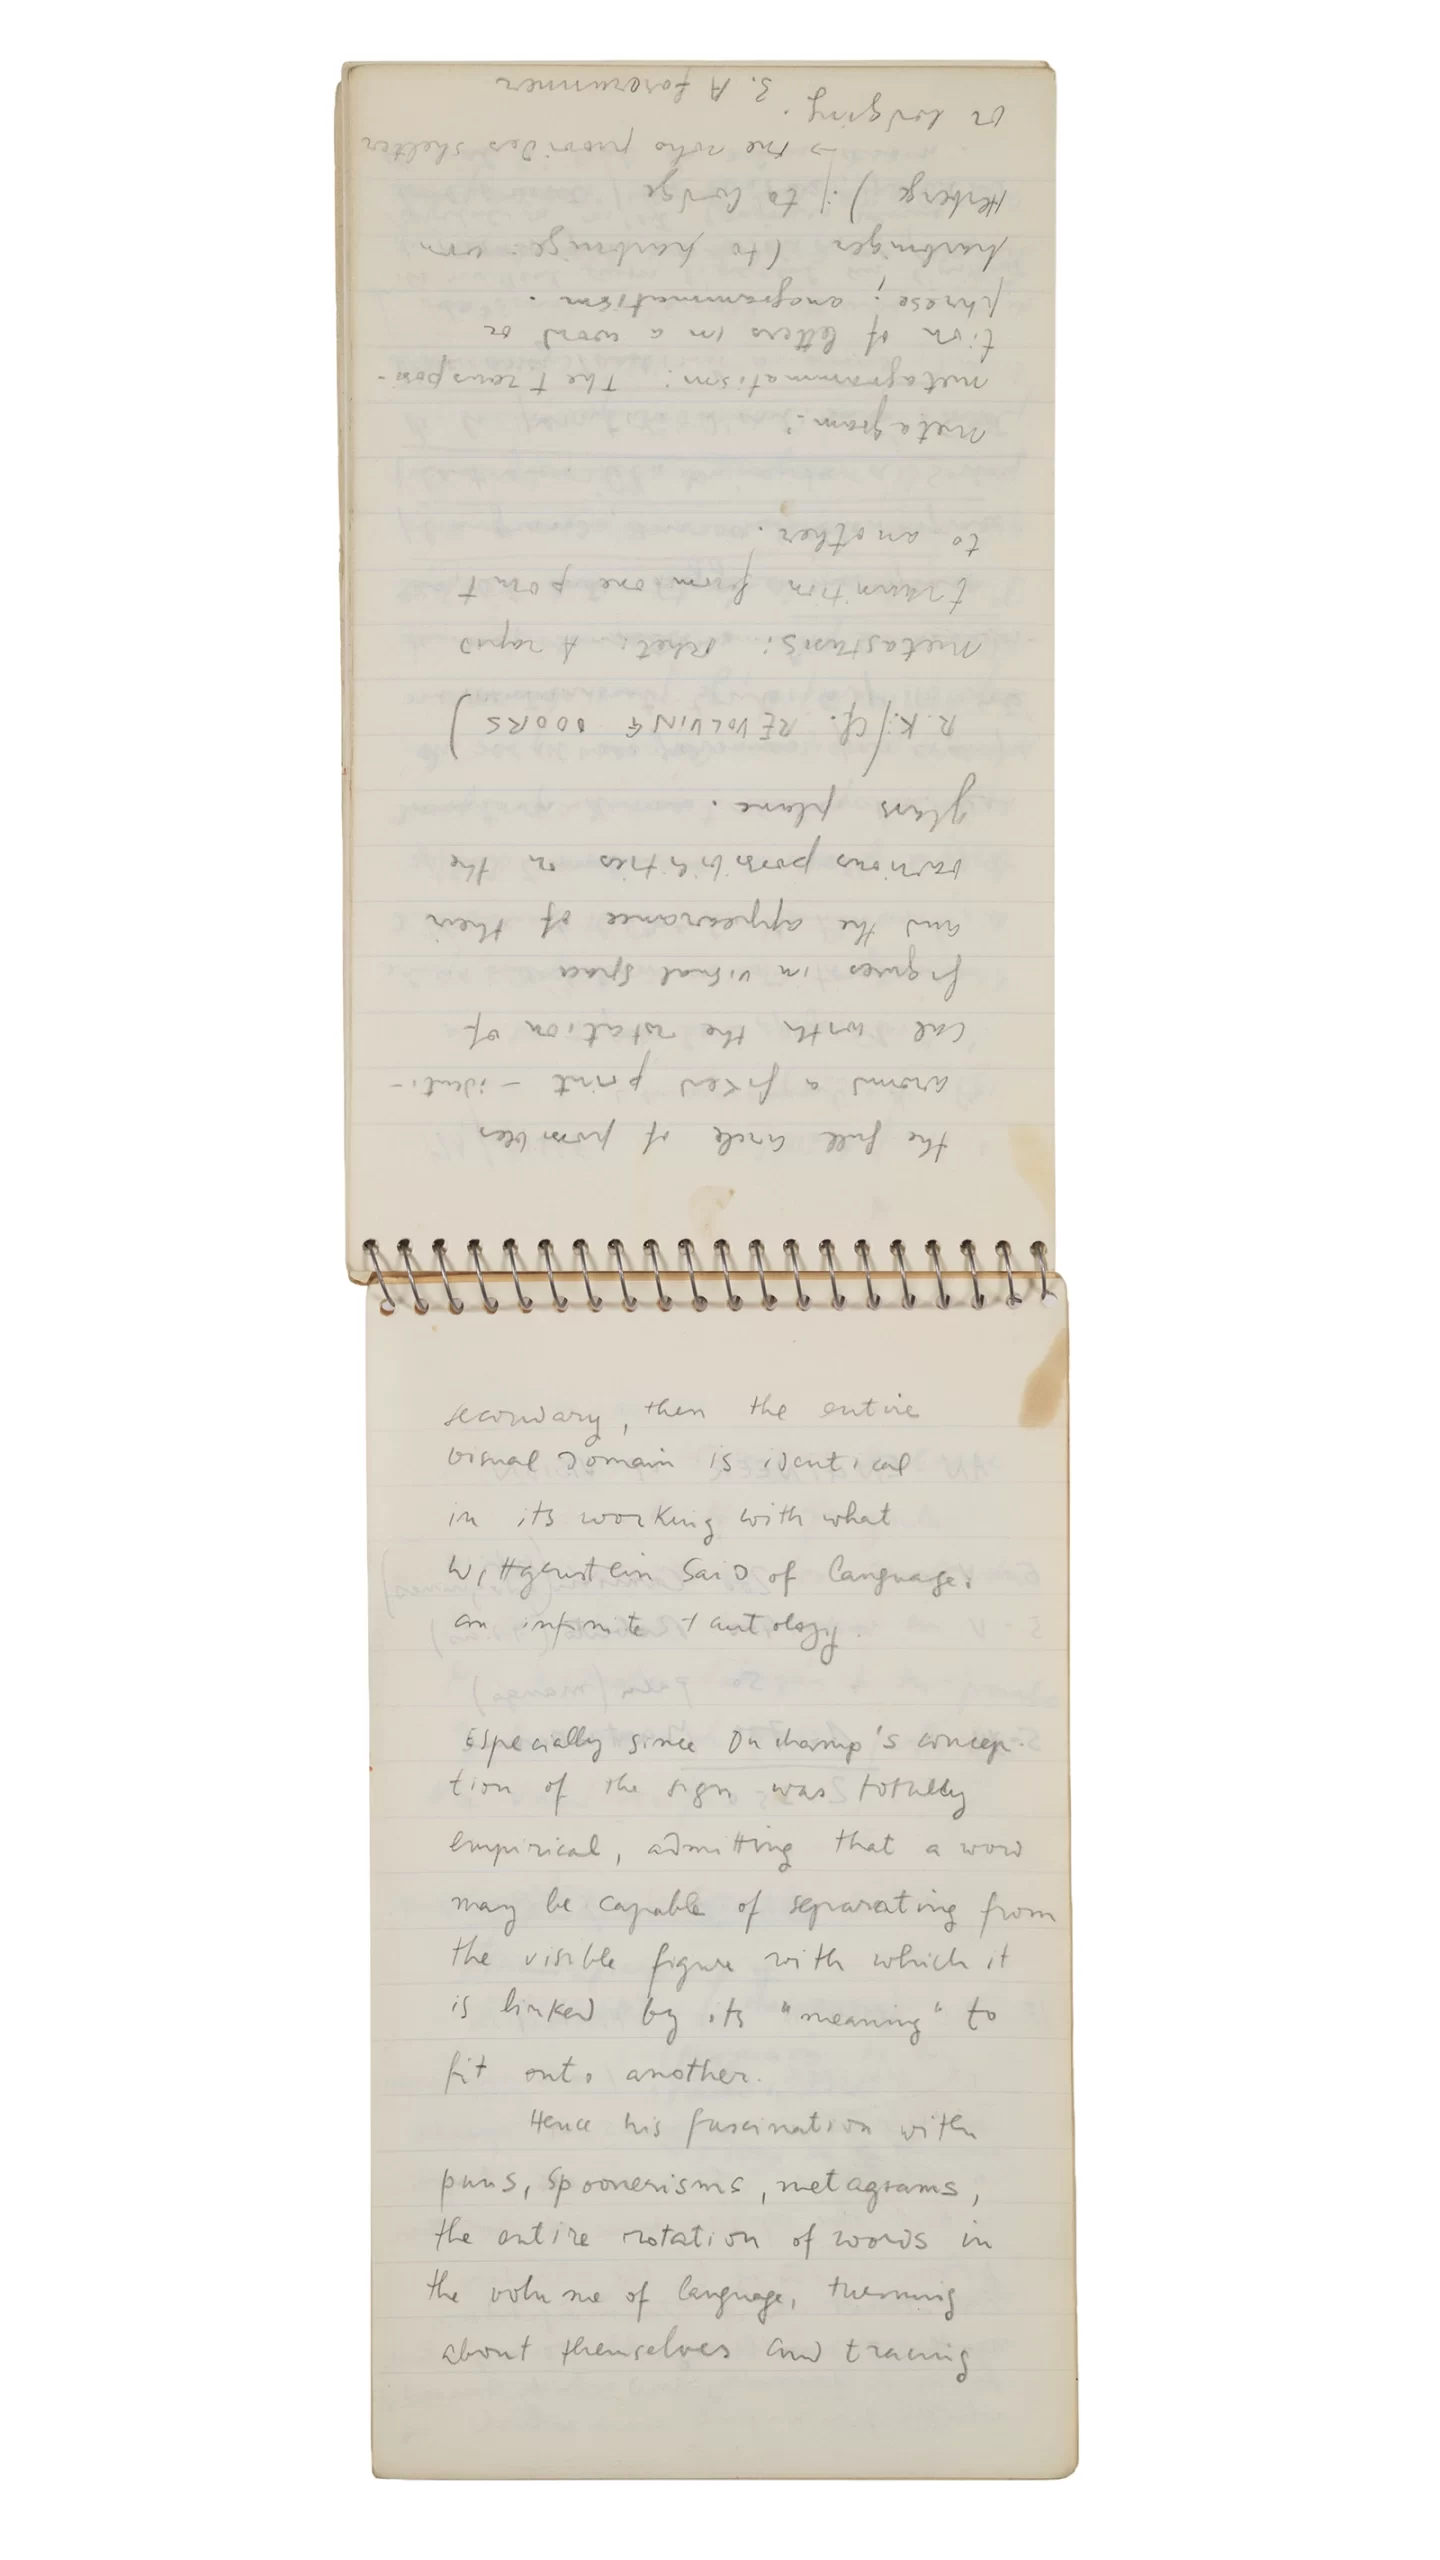 secondary, then the entire
visual domain is identical
in its working with what
Wittgenstein said of language:
an infinite tautology.
Especially since Duchamp's concep-
tion of the sign was totally
empirical, admitting that a word
may be capable of separating from
the visible figure with which it
is linked by its "meaning" to
fit onto another.
Hence his fascination with
puns, spoonerisms, metagrams,
the entire rotation of words in
the volume of language, turning
about themselves and tracing
the full circle of possibles
around a fixed point - identi-
cal with the rotation of
figures in visual space
and the appearance of their
various possibilities on the
glass plane.
R.K. (cf. REVOLVING DOORS)
Metastasis: Rhet: A rapid
transition from one point
to another.
Metagram:
metagrammatism: The transposi-
tion of letters in a word or
phrase; anagrammatism.
harbinger (to harbinge: von
Herberge): to lodge
→ one who provides shelter
or lodging. 3. A forerunner